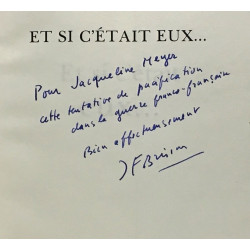 ET SI C'ÉTAIT EUX...
Pour Jacqueline Meyer
cette tentative de pacification
dans la guerre franco-française
Bien affectueusement